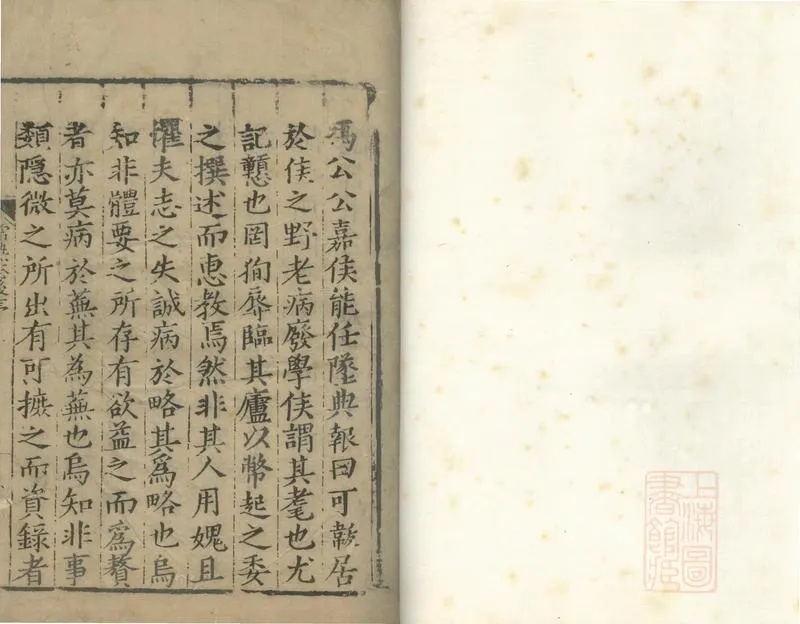 公公嘉侯能任墜典報曰可居
於侯之野老病廢學侯謂其耄也尤
記戇也罔徇辱臨其廬以幣起之委
之撰述而惠教焉然非其人用媿且
懼夫志之失誠病於略其爲略也烏
知非體要之所存有欲益之而爲贅
者亦莫病於蕪其為蕪也烏知非事
類隱微之所出有可摭之而資錄者
上海圖
書館藏